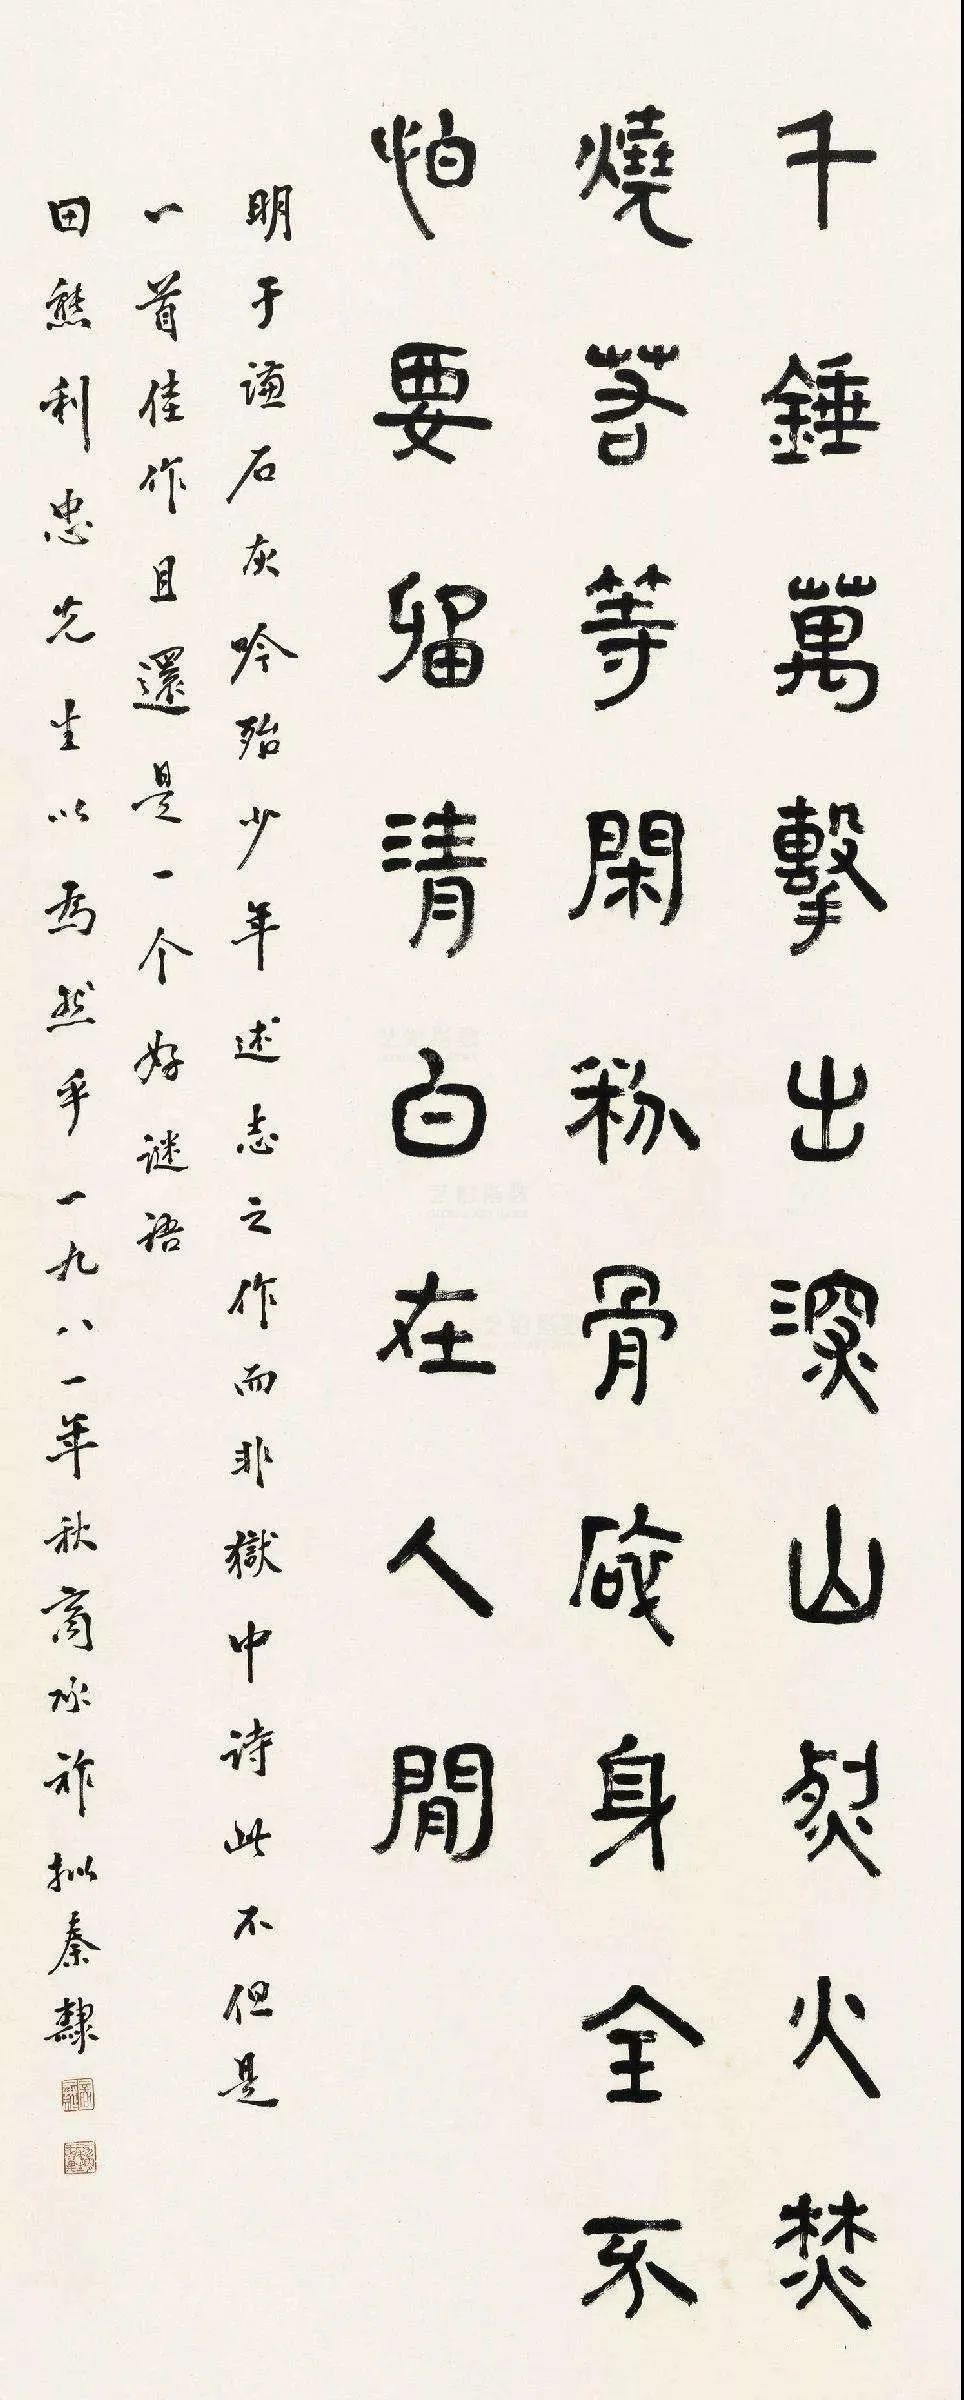 千錘萬擊出深山烈火焚
燒若等閑粉骨碎身全不
怕要留清白在人間
明于谦石灰吟殆少年述志之作而非獄中诗此不但是
一首佳作且還是一个好谜语
田熊利忠先生以爲然乎一九八一年秋商承祚拟秦隸